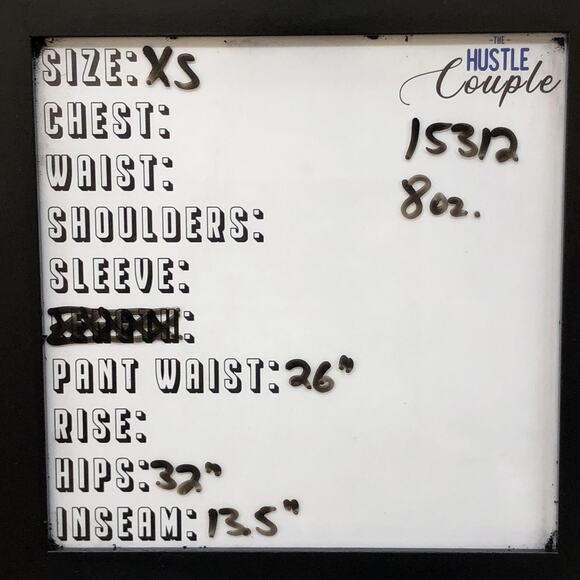 SIZE: XS
-THE-
HUSTLE
Couple
CHEST:
15312
WAIST:
8oz.
SHOULDERS:
SLEEVE:
LENGTH:
PANT WAIST: 26"
RISE:
HIPS: 32"
INSEAM: 13.5"